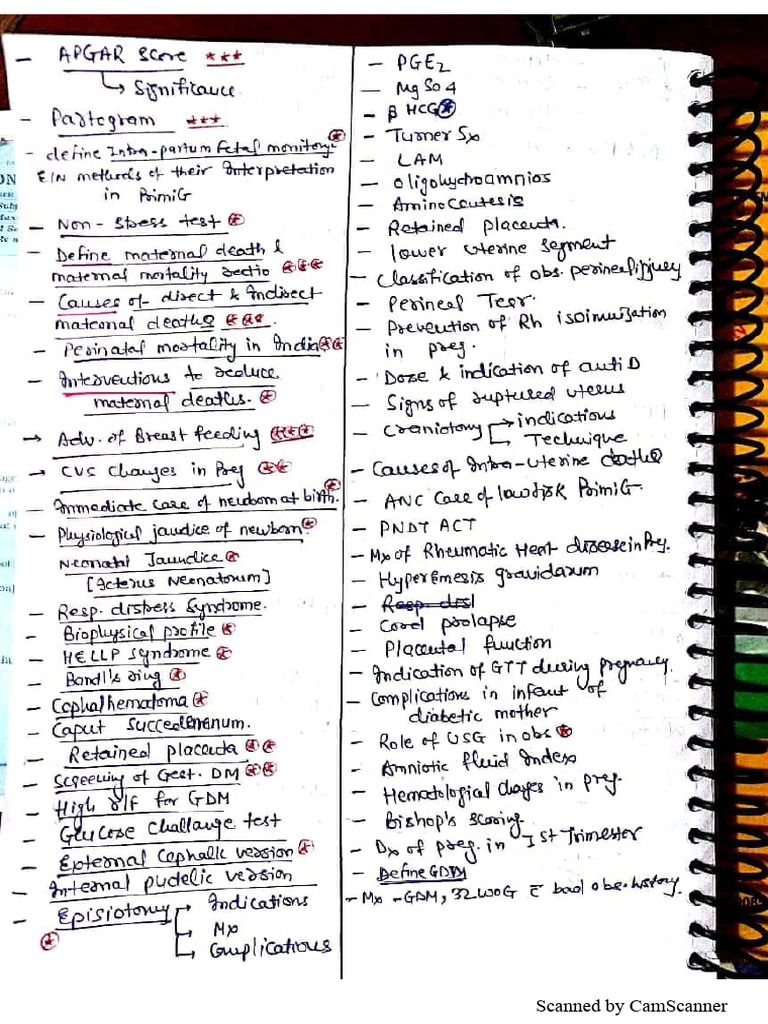 - APGAR Score ***
↳ Significance.
- Partogram ***
- define Intra-partum Fetal monitorg
E/N methods of their Interpretation
in PrimiG
- Non-stress test
- Define maternal death &
maternal mortality ratio
- Causes of direct & Indirect
maternal deaths
- Perinatal mortality in India
- Interventions to reduce
maternal deaths.
→ Adv. of Breast feeding
→ CVS Changes in Preg
- Immediate care of newborn at birth.
- Physiological jaudice of newborn.
Neonatal Jaundice
[Icterus Neonatorum]
- Resp. distress Syndrome.
- Biophysical profile
- HELLP Syndrome
- Bandl's ring
- Cephalhematoma
- Caput Succedenanum.
- Retained placenta
- Screening of Gest. DM
- High r/f for GDM
- Glucose Challange test
- External Cephalic version
- Internal pudelic version
- Episiotomy → Indications
→ Mx
→ Complications
- PGE2
- MgSo4
- β HCG
- Turner Sx
- LAM
- Oligohydroamnios
- Aminocutesis
- Retained placenta.
- lower uterine segment
- Classification of obs. perineal injury
- Perineal Tear.
- Prevention of Rh isoimmization
in preg.
- Dose & indication of anti D
- Signs of ruptured uterus
- Craniotomy → indications
→ Technique
- Causes of Intra-uterine deaths
- ANC Care of low risk PrimiG.
- PNDT ACT
- Mx of Rheumatic Heat disease in Preg.
- Hyperemesis gravidarum
- Resp drsl
- Cord prolapse
- Placental function
- Indication of GTT during pregnancy.
- Complications in infant of
diabetic mother
- Role of USG in obs
- Amniotic fluid Index
- Hematological chages in preg.
- Bishop's scoring
- Dx of preg. in Ist Trimester
- Define GDM
- Mx - GDM, 32 WOG c̄ bad obs. history.
Scanned by CamScanner